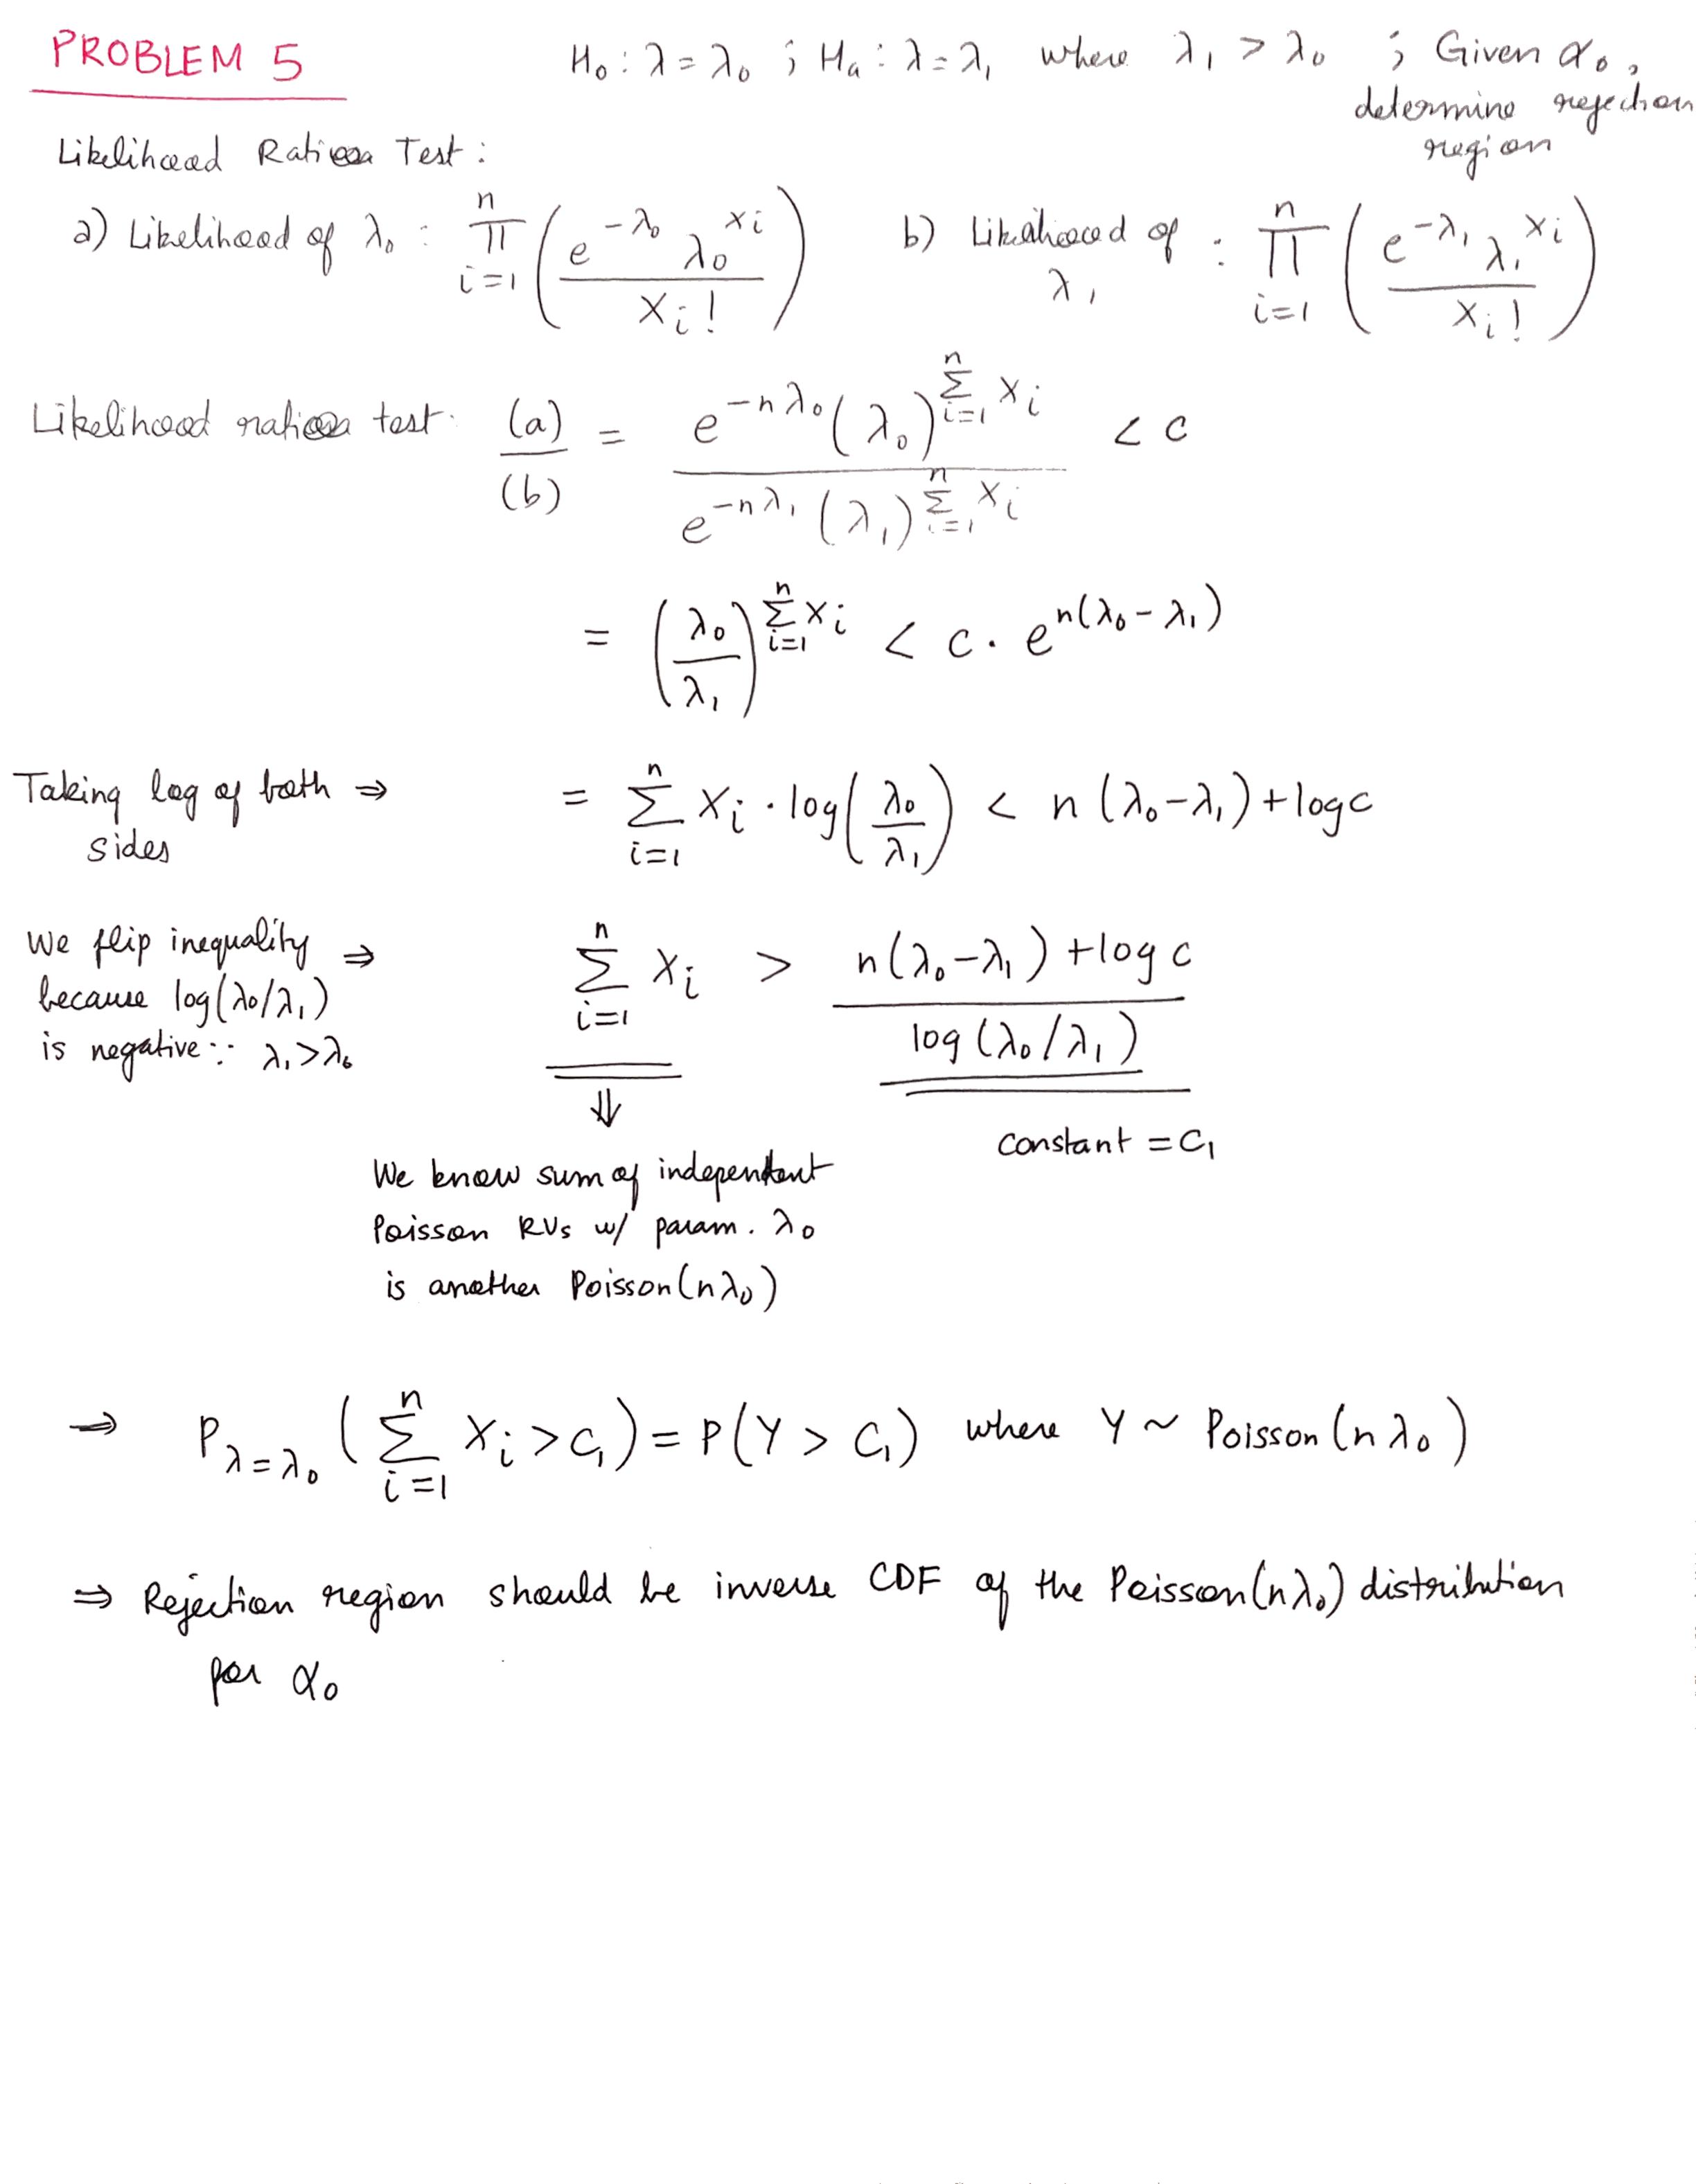 PROBLEM 5
H₀ : λ = λ₀ ; Hₐ : λ = λ₁ where λ₁ > λ₀ ; Given α₀,
determine rejection
region
Likelihood Ratio Test :
a) Likelihood of λ₀ : ∏_{i=1}^{n} ( e^{-λ₀} λ₀^{Xi} / Xi! )
b) Likelihood of λ₁ : ∏_{i=1}^{n} ( e^{-λ₁} λ₁^{Xi} / Xi! )
Likelihood ratio test: (a)/(b) = e^{-nλ₀} (λ₀)^{∑_{i=1}^{n} Xi} / e^{-nλ₁} (λ₁)^{∑_{i=1}^{n} Xi} < c
= (λ₀/λ₁)^{∑_{i=1}^{n} Xi} < c · e^{n(λ₀-λ₁)}
Taking log of both ⇒ = ∑_{i=1}^{n} Xi · log(λ₀/λ₁) < n(λ₀-λ₁) + log c
sides
We flip inequality ⇒
because log(λ₀/λ₁)
is negative ∵ λ₁ > λ₀
∑_{i=1}^{n} Xi > n(λ₀-λ₁) + log c / log(λ₀/λ₁)
⇓
constant = C₁
We know sum of independent
Poisson RVs w/ param. λ₀
is another Poisson(nλ₀)
→ P_{λ=λ₀} ( ∑_{i=1}^{n} Xi > C₁ ) = P(Y > C₁) where Y ~ Poisson(nλ₀)
⇒ Rejection region should be inverse CDF of the Poisson(nλ₀) distribution
for α₀